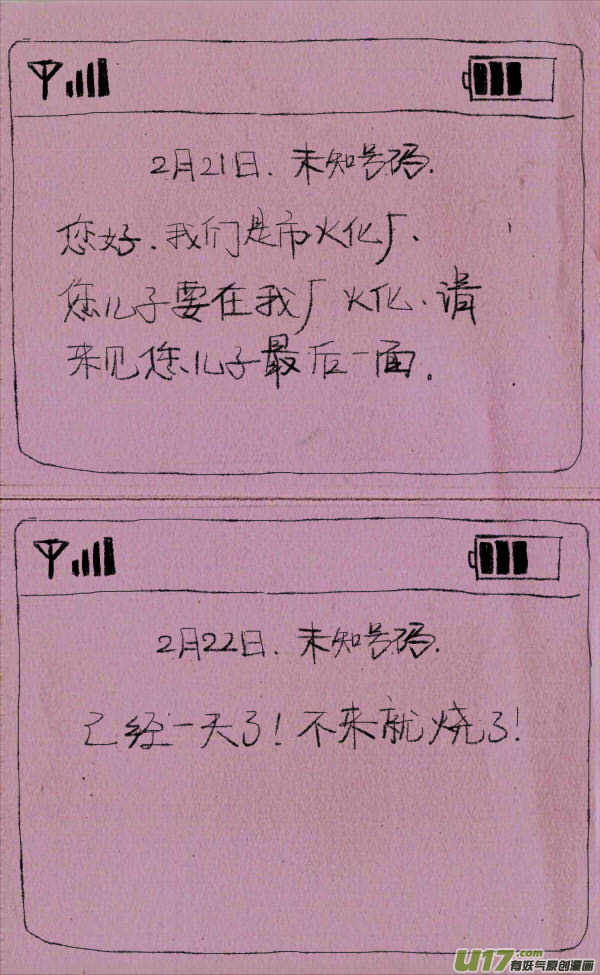 2月21日. 未知号码.
您好.我们是市火化厂.
您儿子要在我厂火化.请
来见您儿子最后一面.
2月22日. 未知号码.
已经一天了!不来就烧了!
U17.com
有妖气原创漫画